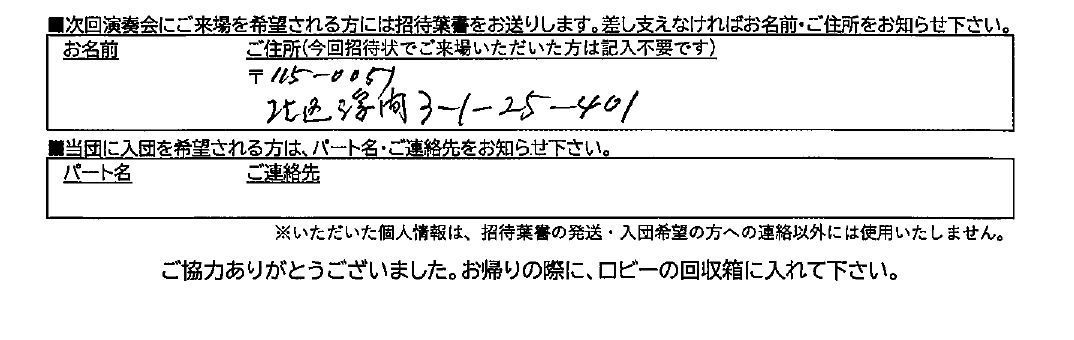 ■次回演奏会にご来場を希望される方には招待葉書をお送りします。差し支えなければお名前・ご住所をお知らせ下さい。
お名前
ご住所(今回招待状でご来場いただいた方は記入不要です)
〒115-0051
北区浮間3-1-25-401
■当団に入団を希望される方は、パート名・ご連絡先をお知らせ下さい。
パート名
ご連絡先
※いただいた個人情報は、招待葉書の発送・入団希望の方への連絡以外には使用いたしません。
ご協力ありがとうございました。お帰りの際に、ロビーの回収箱に入れて下さい。